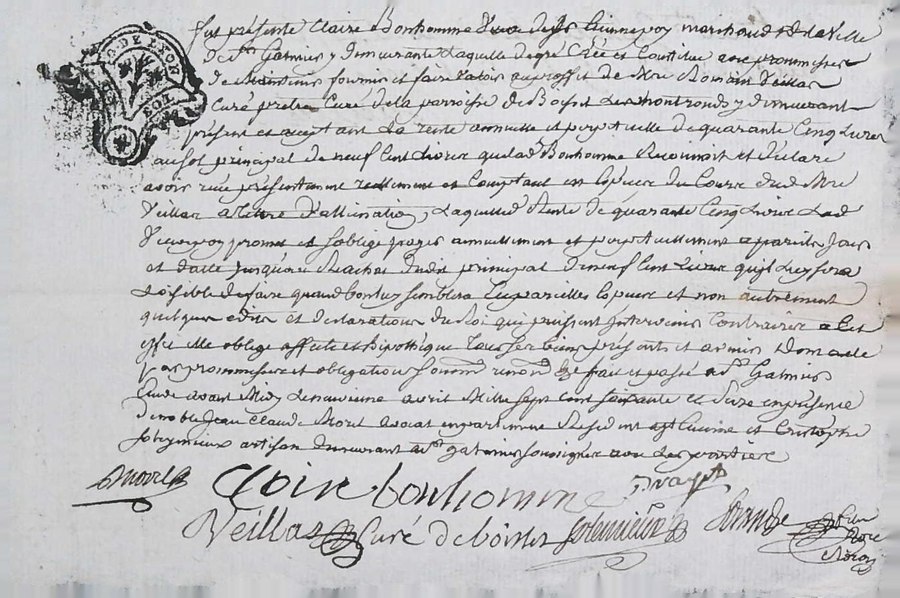 G. DE LYON
Fut présente Claire Bonhomme marchand de la ville
de St Galmier y demeurante laquelle de gré Crée et Constitue avec promesses
de maintenir fournir et faire valoir au proffit de Mre Romain Veillas
Curé pretre Curé de la parroisse de Boisset Les montronds y demeurant
présent et aceptant La rente annuelle et perpetuelle de quarante Cinq Livres
au sol principal de neuf Cent Livres que lad Bonhomme Reconnoit et déclare
avoir reçu présentement réellement et Comptant en Espece du Cours dud Mre
Veillas a titre d'allienation, Laquelle Rente de quarante Cinq Livres Lad
promet et s'oblige payer annuellement et perpetuellement a pareils Jour
et datte Jusqu'au Rachat dudit principal de neuf Cent Livres qu'il Luy sera
Loisible de faire quand bon luy semblera En pareilles Espece et non autrement
quelques edits et declarations du Roi qui puissent Intervenir Contraires a Cet
effet elle oblige affecte et hipotheque tous Ses biens présents et avenir
par prommesse et obligation fait et passé a St Galmier
avant Midy Le neuvieme avril Mille sept Cent soixante et Seize en présence
de noble Jean Claude Morel avocat en parlement Resident et Cristophe
Solemieux artisan demeurant a St galmier soussignés avec Les parties
Morel Claire bonhomme
Veillas Curé de boisset Solemieux